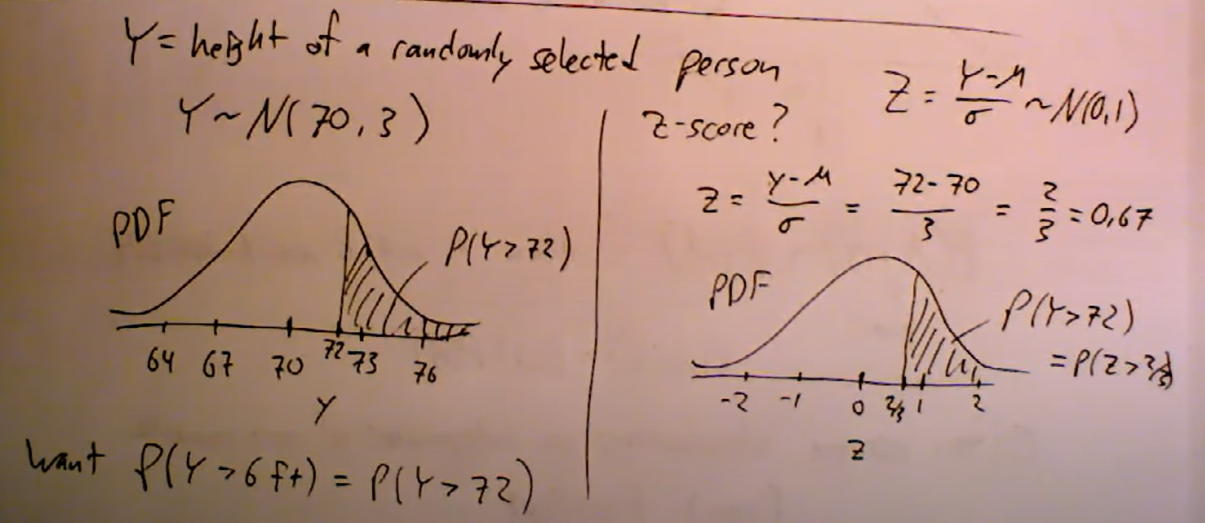 Y = height of a randomly selected person
Y ~ N(70, 3)
PDF
P(Y>72)
64 67 70 72 73 76
Y
Want P(Y > 6 ft) = P(Y > 72)
Z-score?
Z = (Y-μ)/σ ~ N(0,1)
Z = (Y-μ)/σ = (72-70)/3 = 2/3 = 0,67
PDF
P(Y>72)
= P(Z > 2/3)
-2 -1 0 2/3 1 2
Z